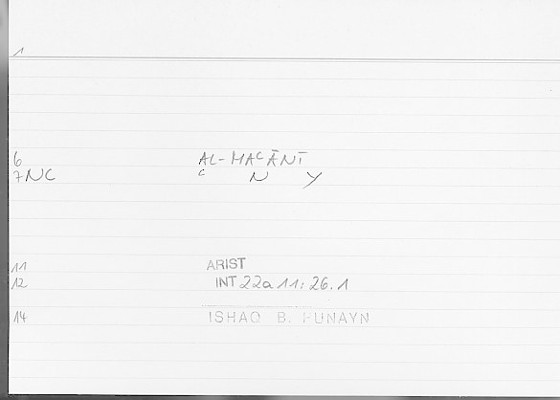 1
6 AL-MAᶜĀNĪ
7 NC ᶜ N Y
11 ARIST
12 INT 22a11: 26.1
14 ISHAQ B. HUNAYN